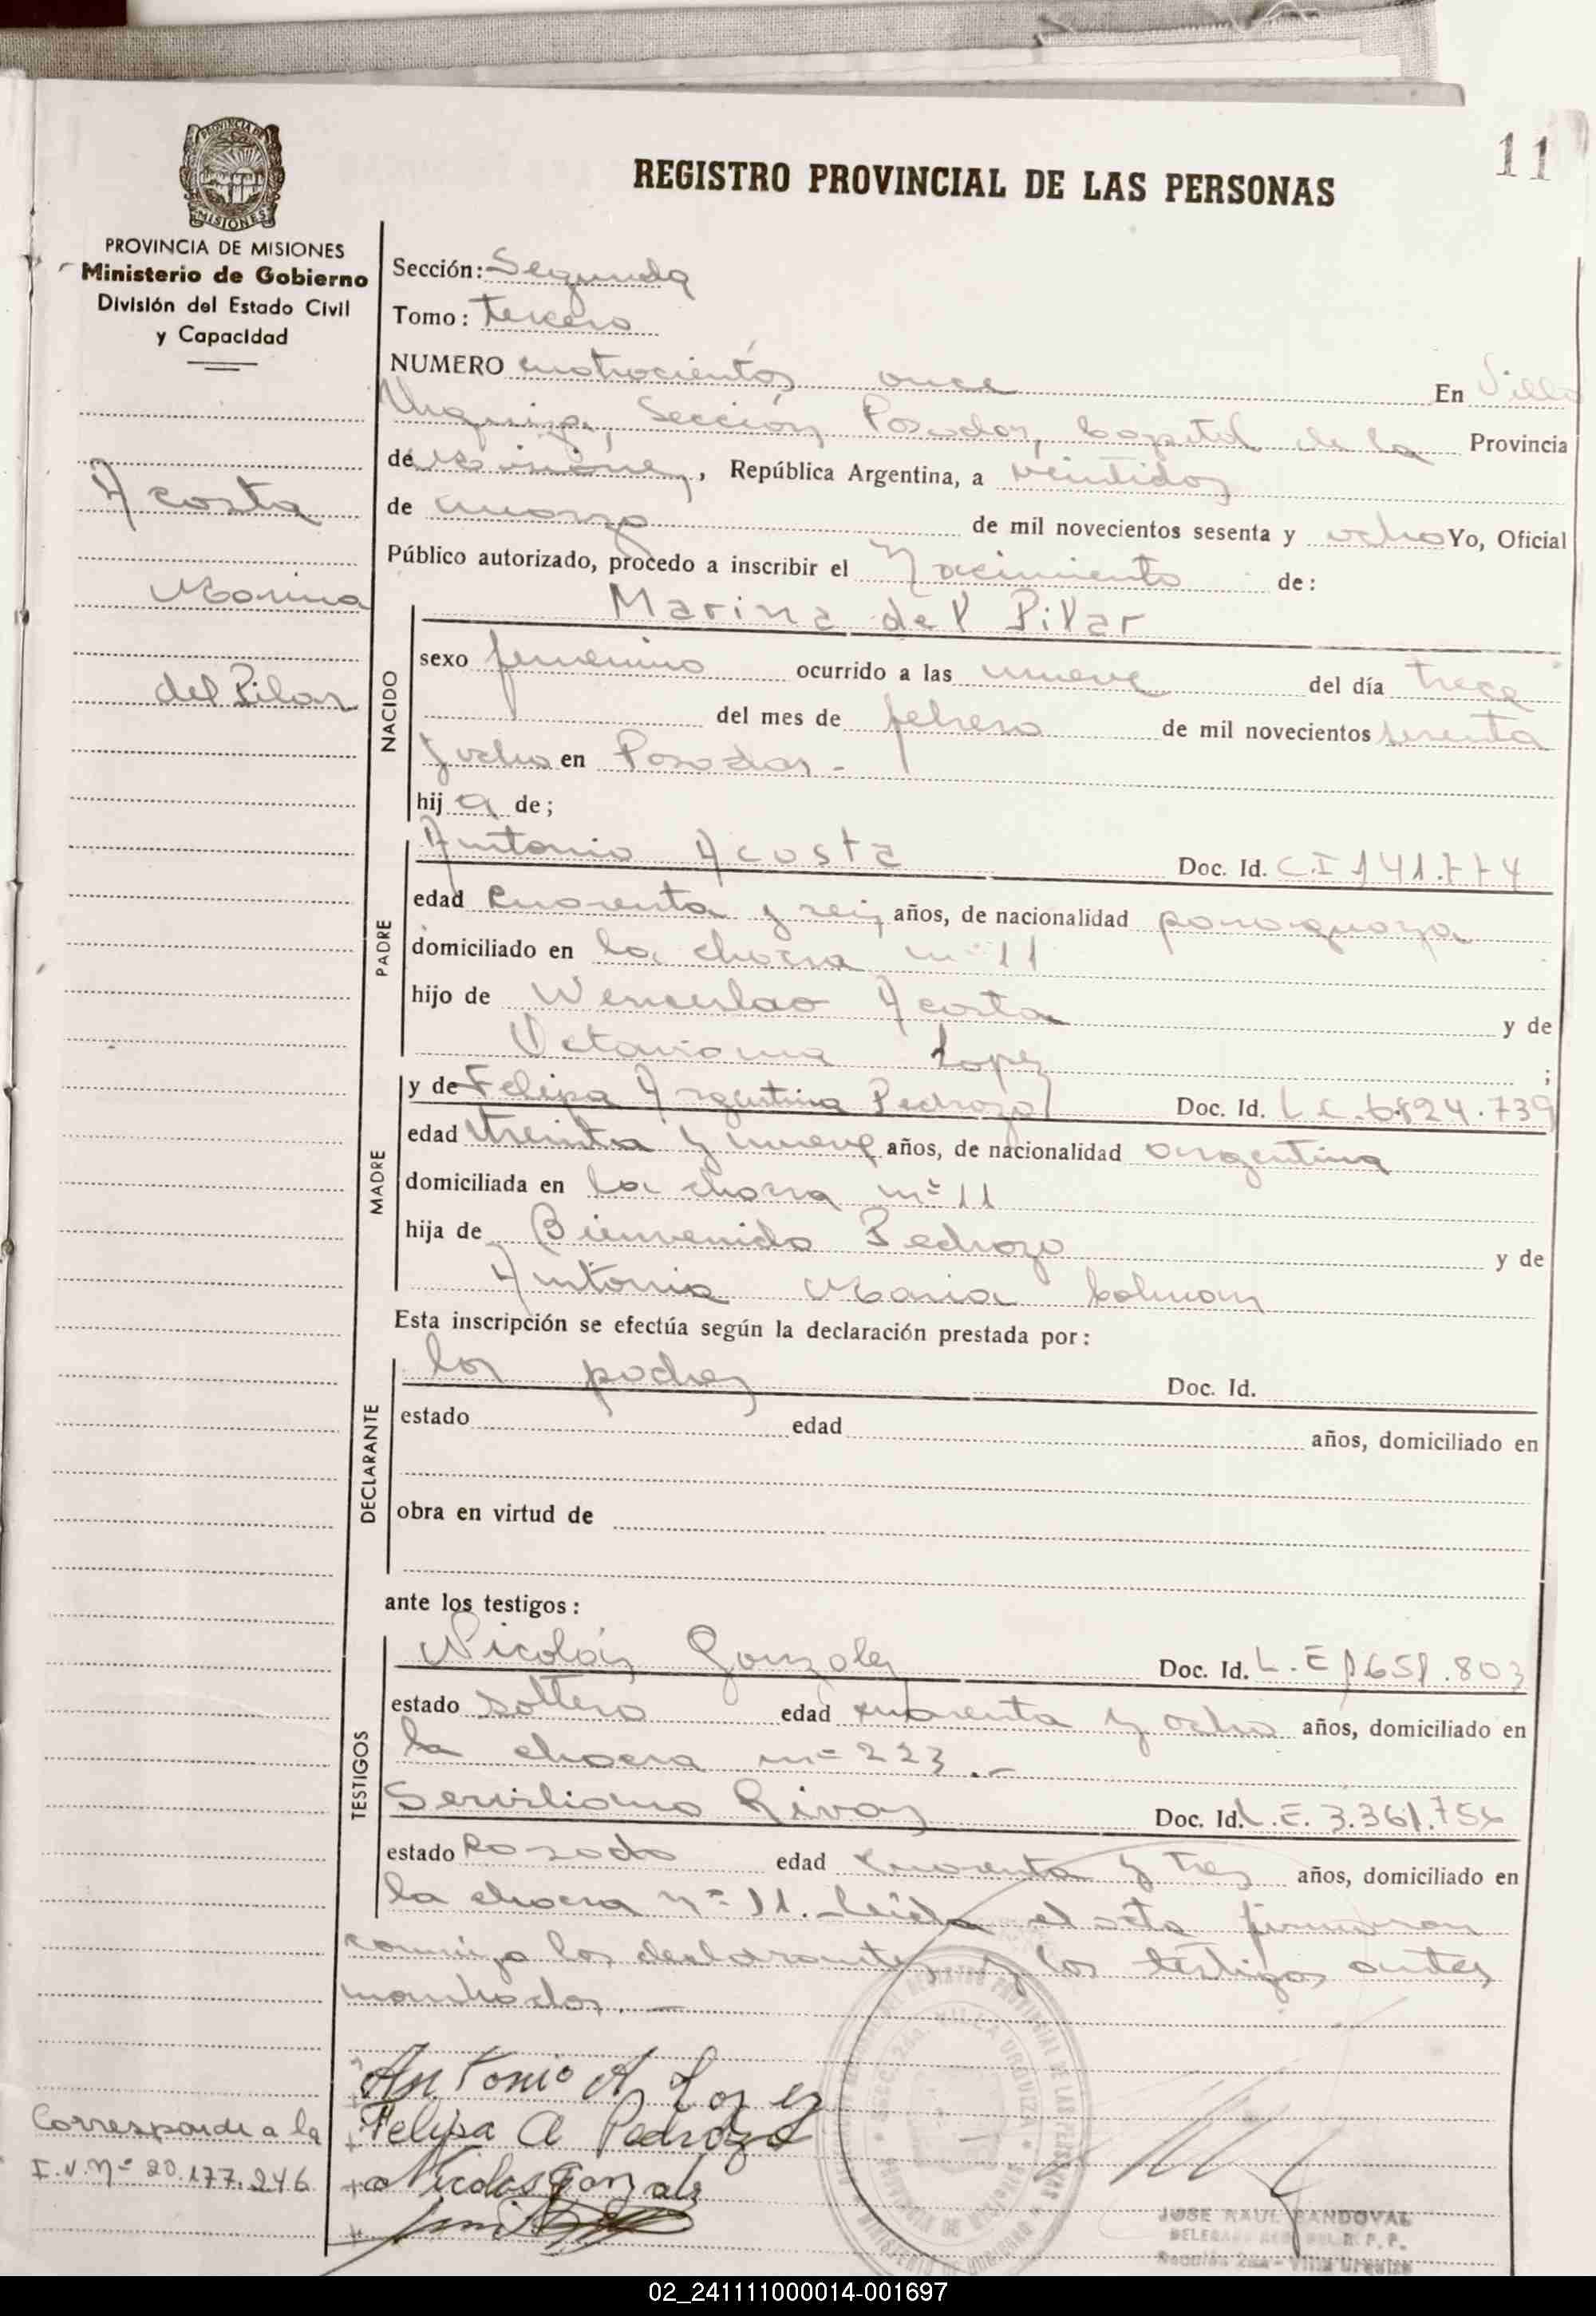 11
PROVINCIA DE
MISIONES
REGISTRO PROVINCIAL DE LAS PERSONAS
PROVINCIA DE MISIONES
Ministerio de Gobierno
División del Estado Civil
y Capacidad
Acosta
Marina
del Pilar
Sección: Segunda
Tomo: tercero
NUMERO cuatrocientos once En Villa
Urquiza, Sección Posadas, Capital de la Provincia
de Misiones, República Argentina, a veintidos
de marzo de mil novecientos sesenta y ocho Yo, Oficial
Público autorizado, procedo a inscribir el Nacimiento de:
NACIDO
Marina del Pilar
sexo femenino ocurrido a las nueve del día trece
del mes de febrero de mil novecientos sesenta
y ocho en Posadas.-
hija de;
PADRE
Antonio Acosta Doc. Id. C.I 141.774
edad cuarenta y seis años, de nacionalidad paraguaya
domiciliado en la chacra nº 11
hijo de Wenceslao Acosta y de
Octaviana Lopez ;
MADRE
y de Felipa Argentina Pedrozo Doc. Id. L.C. 6.824.739
edad treinta y nueve años, de nacionalidad argentina
domiciliada en la chacra nº 11
hija de Bienvenido Pedrozo y de
Antonia Maria Colman
Esta inscripción se efectúa según la declaración prestada por:
DECLARANTE
los padres Doc. Id.
estado edad años, domiciliado en
obra en virtud de
ante los testigos:
TESTIGOS
Nicolás Gonzalez Doc. Id. L.E 1.651.803
estado soltero edad cuarenta y ocho años, domiciliado en
la chacra nº 223.-
Serviliano Rivas Doc. Id. L.E. 3.361.756
estado Casado edad cuarenta y tres años, domiciliado en
la chacra nº 11.- Leída el acta firmaron
conmigo los declarantes y los testigos antes
nombrados.-
Antonio A Lopez
Felipa A Pedrozo
Nicolas Gonzalz
Corresponde a la
I.N. Nº 20.177.246
SECC. 2da. VILLA URQUIZA
JOSE RAUL SANDOVAL
Sección 2da - Villa Urquiza
02_241111000014-001697